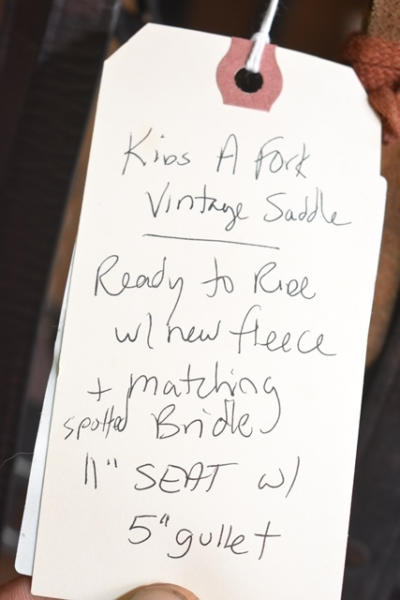 Kids A Fork
Vintage Saddle
Ready to Ride
w/ new fleece
+ matching
spotted Bridle
11" SEAT w/
5" gullet